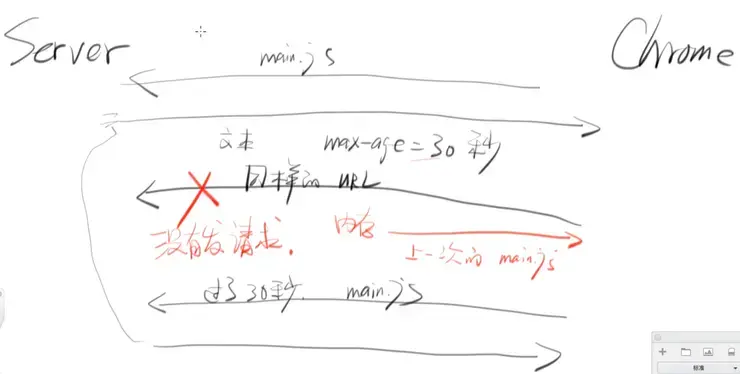 Server
Chrome
main.js
文本 max-age=30秒
同样的 URL
没有发请求. 内存
上一次的 main.js
过了30秒. main.js
标准